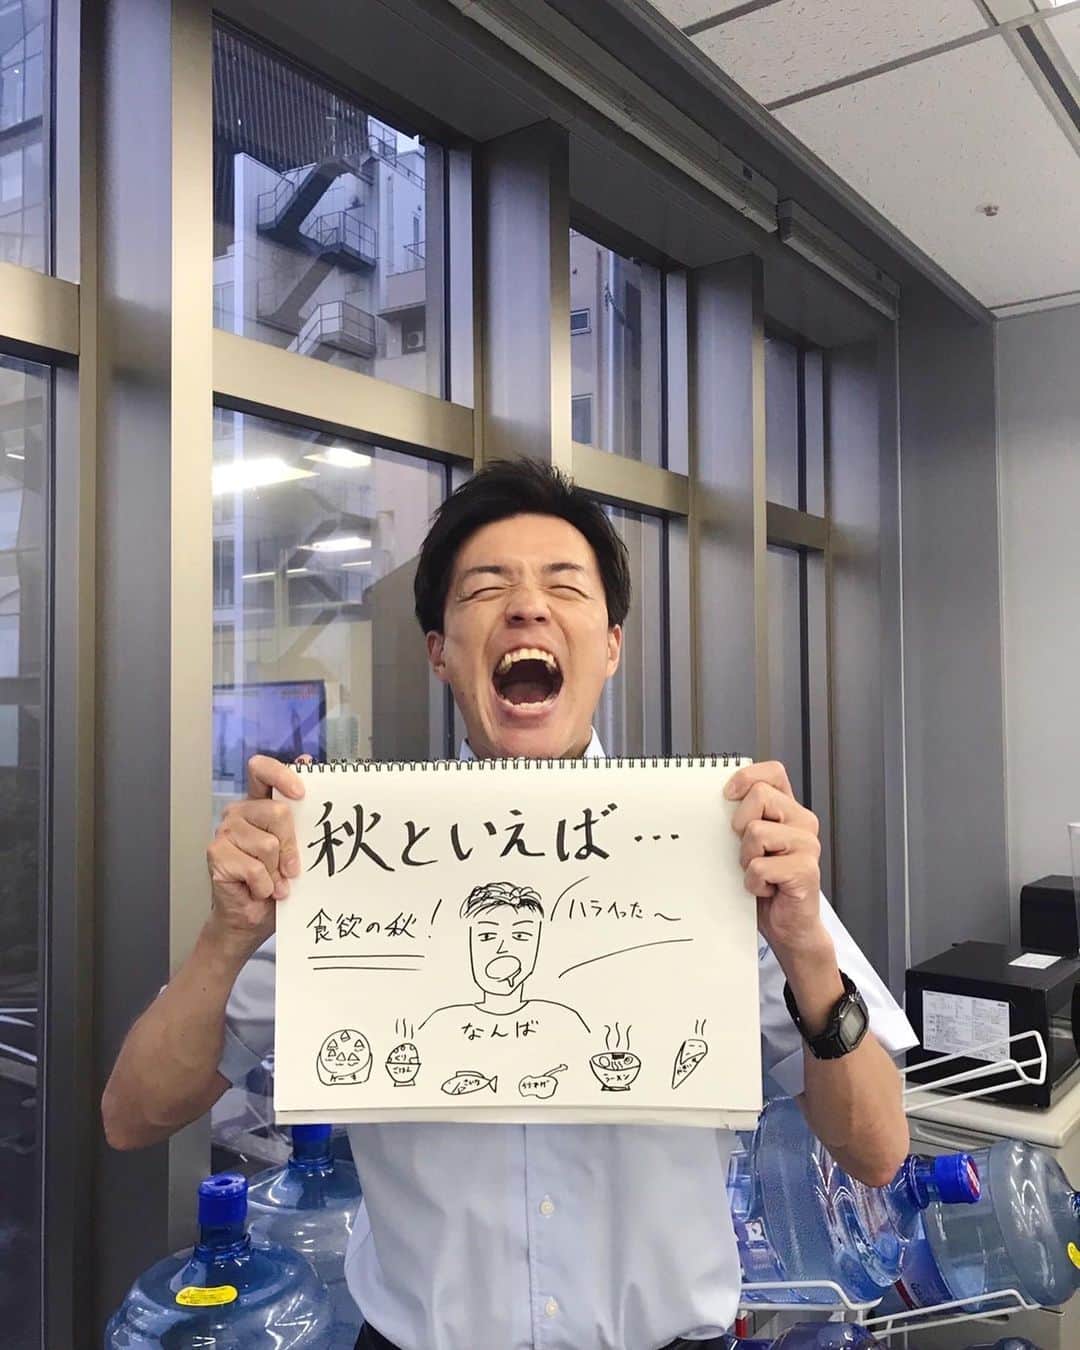 秋といえば…
食欲の秋!
ハラへった〜
なんば
ケーキ
くり
ごはん
さんま
ラーメン